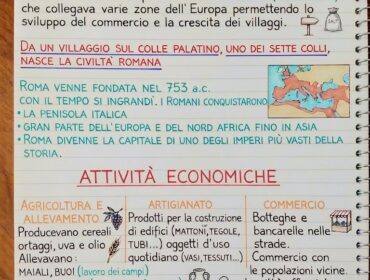 che collegava varie zone dell'Europa permettendo lo
sviluppo del commercio e la crescita dei villaggi.
SALT
DA UN VILLAGGIO SUL COLLE PALATINO, UNO DEI SETTE COLLI,
NASCE LA CIVILTÀ ROMANA
ROMA VENNE FONDATA NEL 753 a.c.
CON IL TEMPO SI INGRANDÌ. I ROMANI CONQUISTARONO
• LA PENISOLA ITALICA
• GRAN PARTE DELL'EUROPA E DEL NORD AFRICA FINO IN ASIA
• ROMA DIVENNE LA CAPITALE DI UNO DEGLI IMPERI PIÙ VASTI DELLA
STORIA.
ATTIVITÀ ECONOMICHE
AGRICOLTURA E
ALLEVAMENTO
Producevano cereali
ortaggi, uva e olio
Allevavano:
MAIALI, BUOI (lavoro dei campi)
ARTIGIANATO
Prodotti per la costruzione
di edifici (MATTONI, TEGOLE,
TUBI...) oggetti d'uso
quotidiano (VASI, TESSUTI...)
COMMERCIO
Botteghe e
bancarelle nelle
strade.
Commercio con
le popolazioni vicine